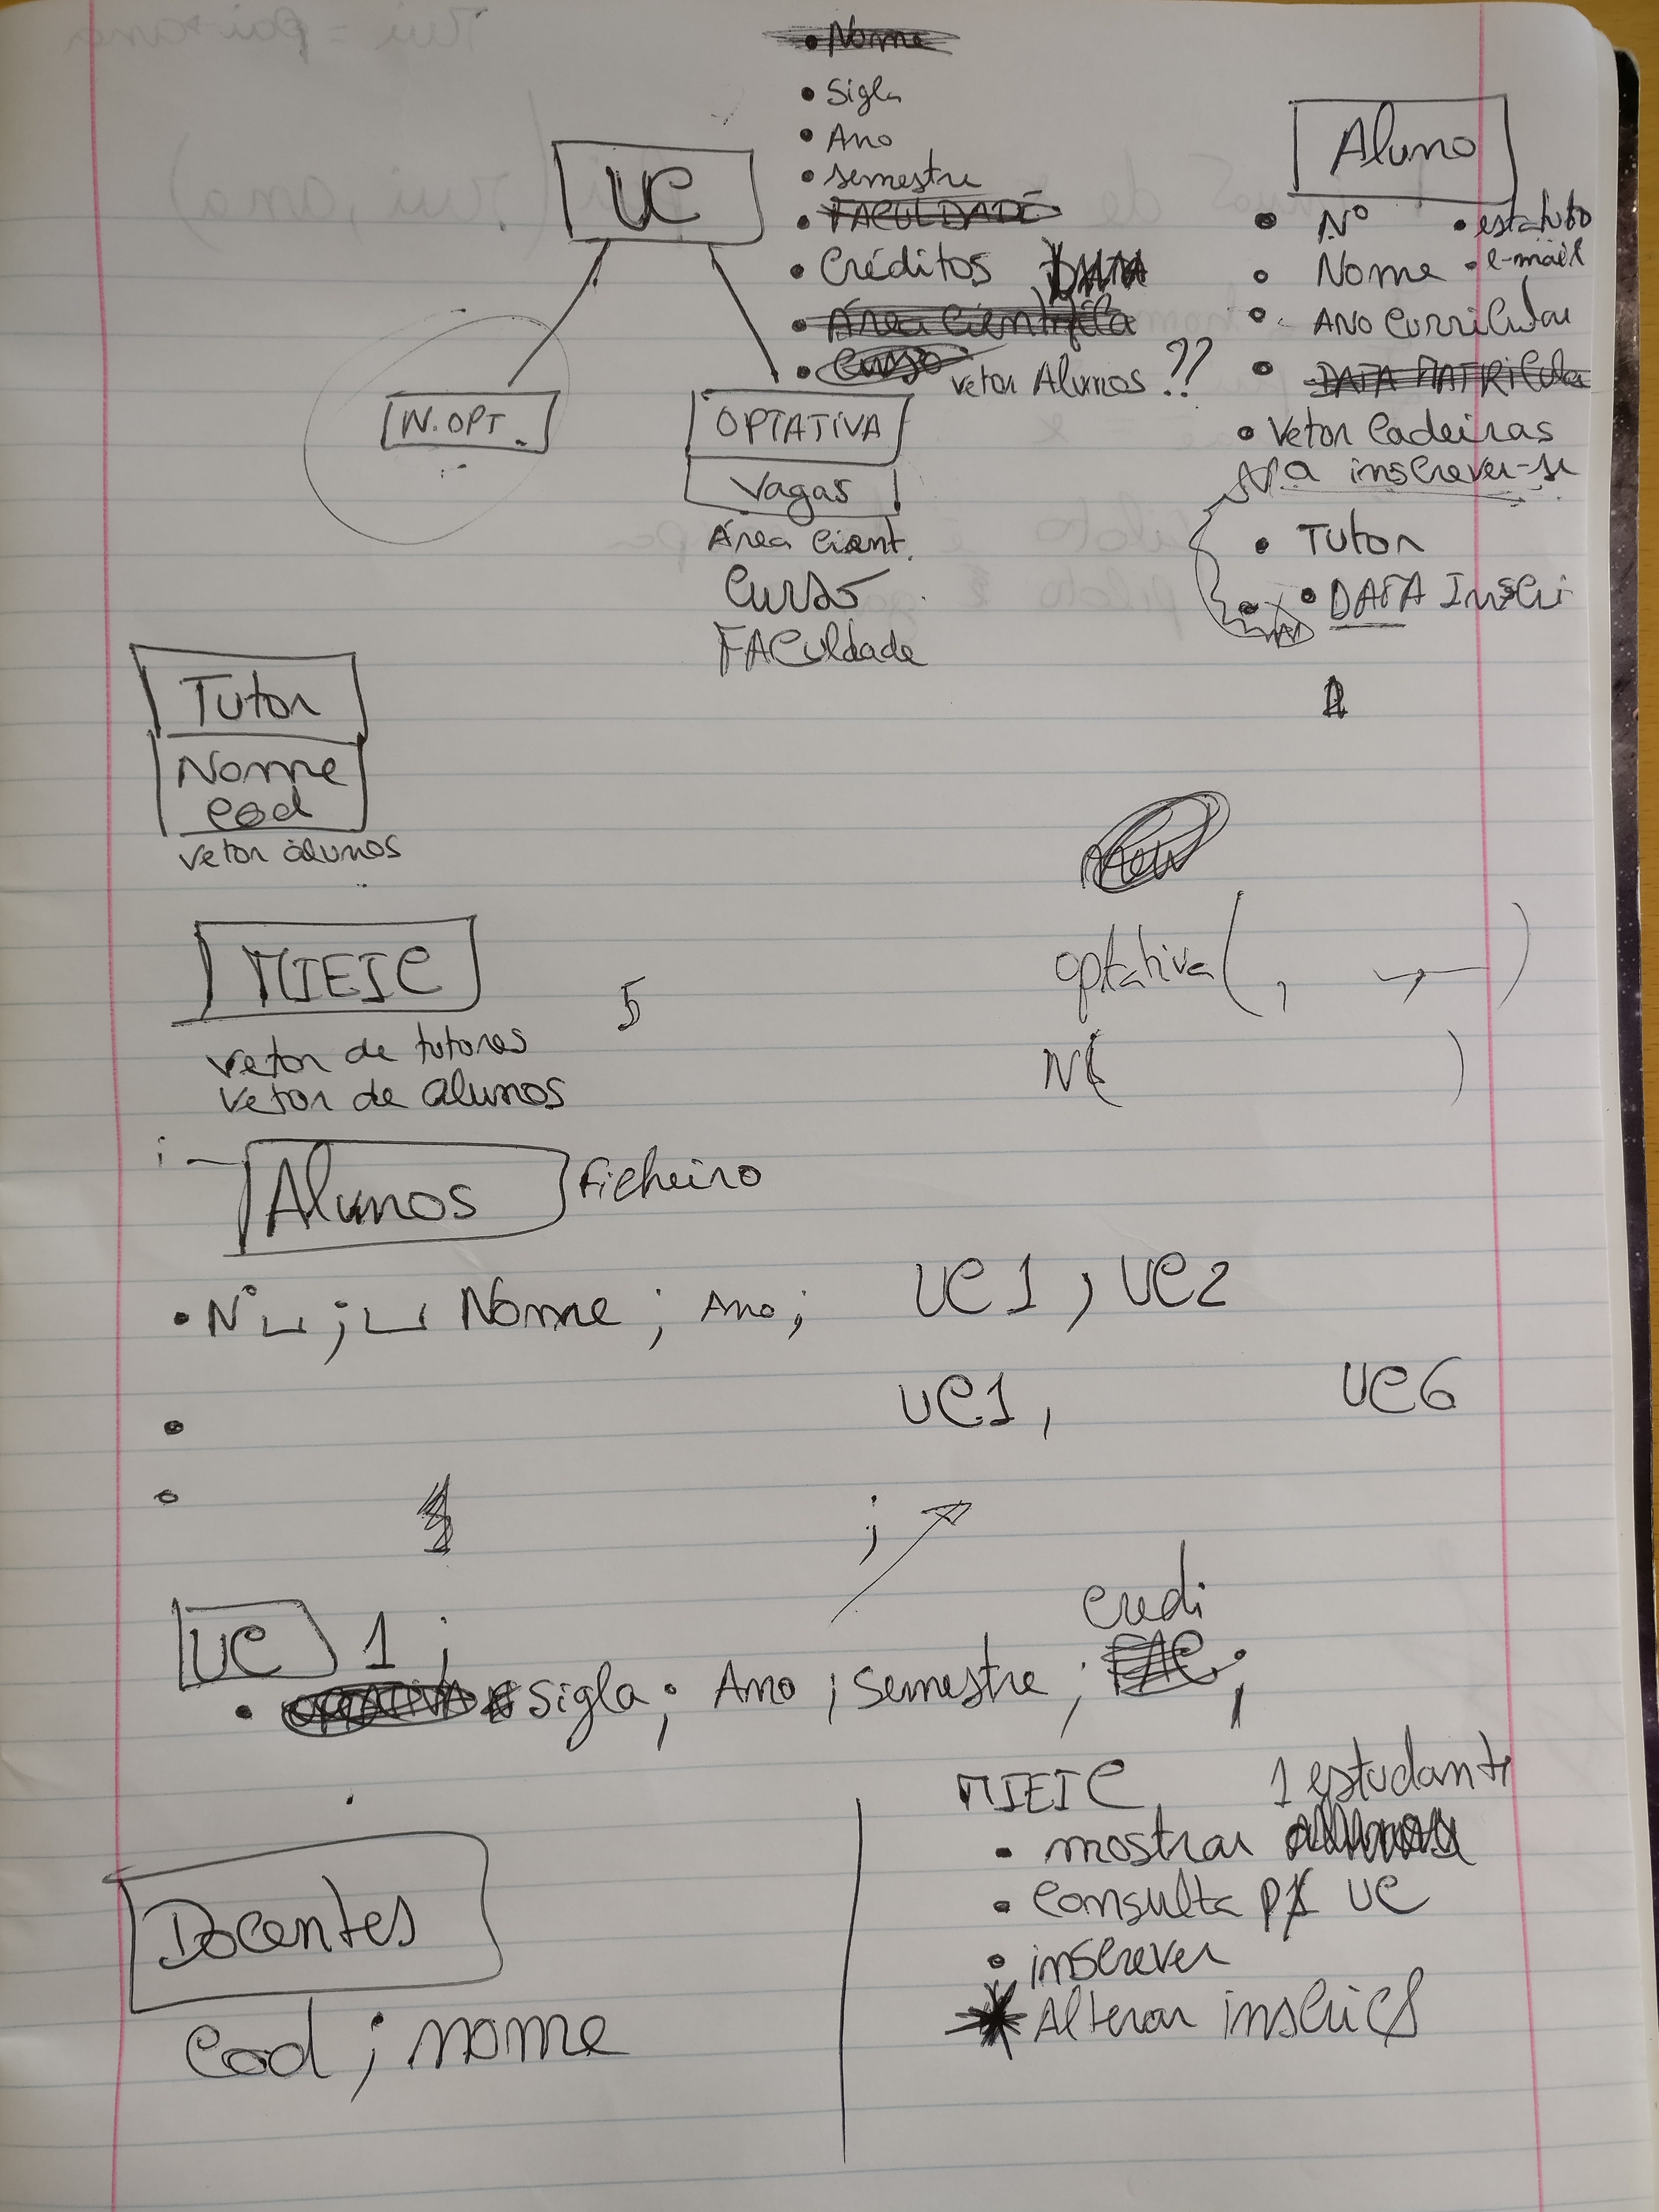 • Nome
• Sigla
• Ano
• semestre
• FACULDADE
• Créditos
• Área Científica
• Curso
vetor Alunos ??
UC
N. OPT.
OPTATIVA
Vagas
Área cient.
Curso
FACuldade
Aluno
• Nº • estatuto
• Nome • e-mail
• ANO Curricular
• DATA MATRICula
• Vetor Cadeiras
inscrever-se
• Tutor
• DATA Inscri
Tutor
Nome
Cod
Vetor alunos
MIEIC
vetor de tutores
Vetor de alunos
5
optativa( , , )
N( )
Alunos ficheiro
• Nº ; Nome ; Ano ; UC1 , UC2
• UC1 , UC6
• ;
UC 1 ;
Credi
• OPTATIVA Sigla ; Ano ; Semestre ; FAC ;
Docentes
Cod ; nome
MIEIC 1 estudante
• mostrar
• Consulta p/ UC
• inscrever
* Alterar